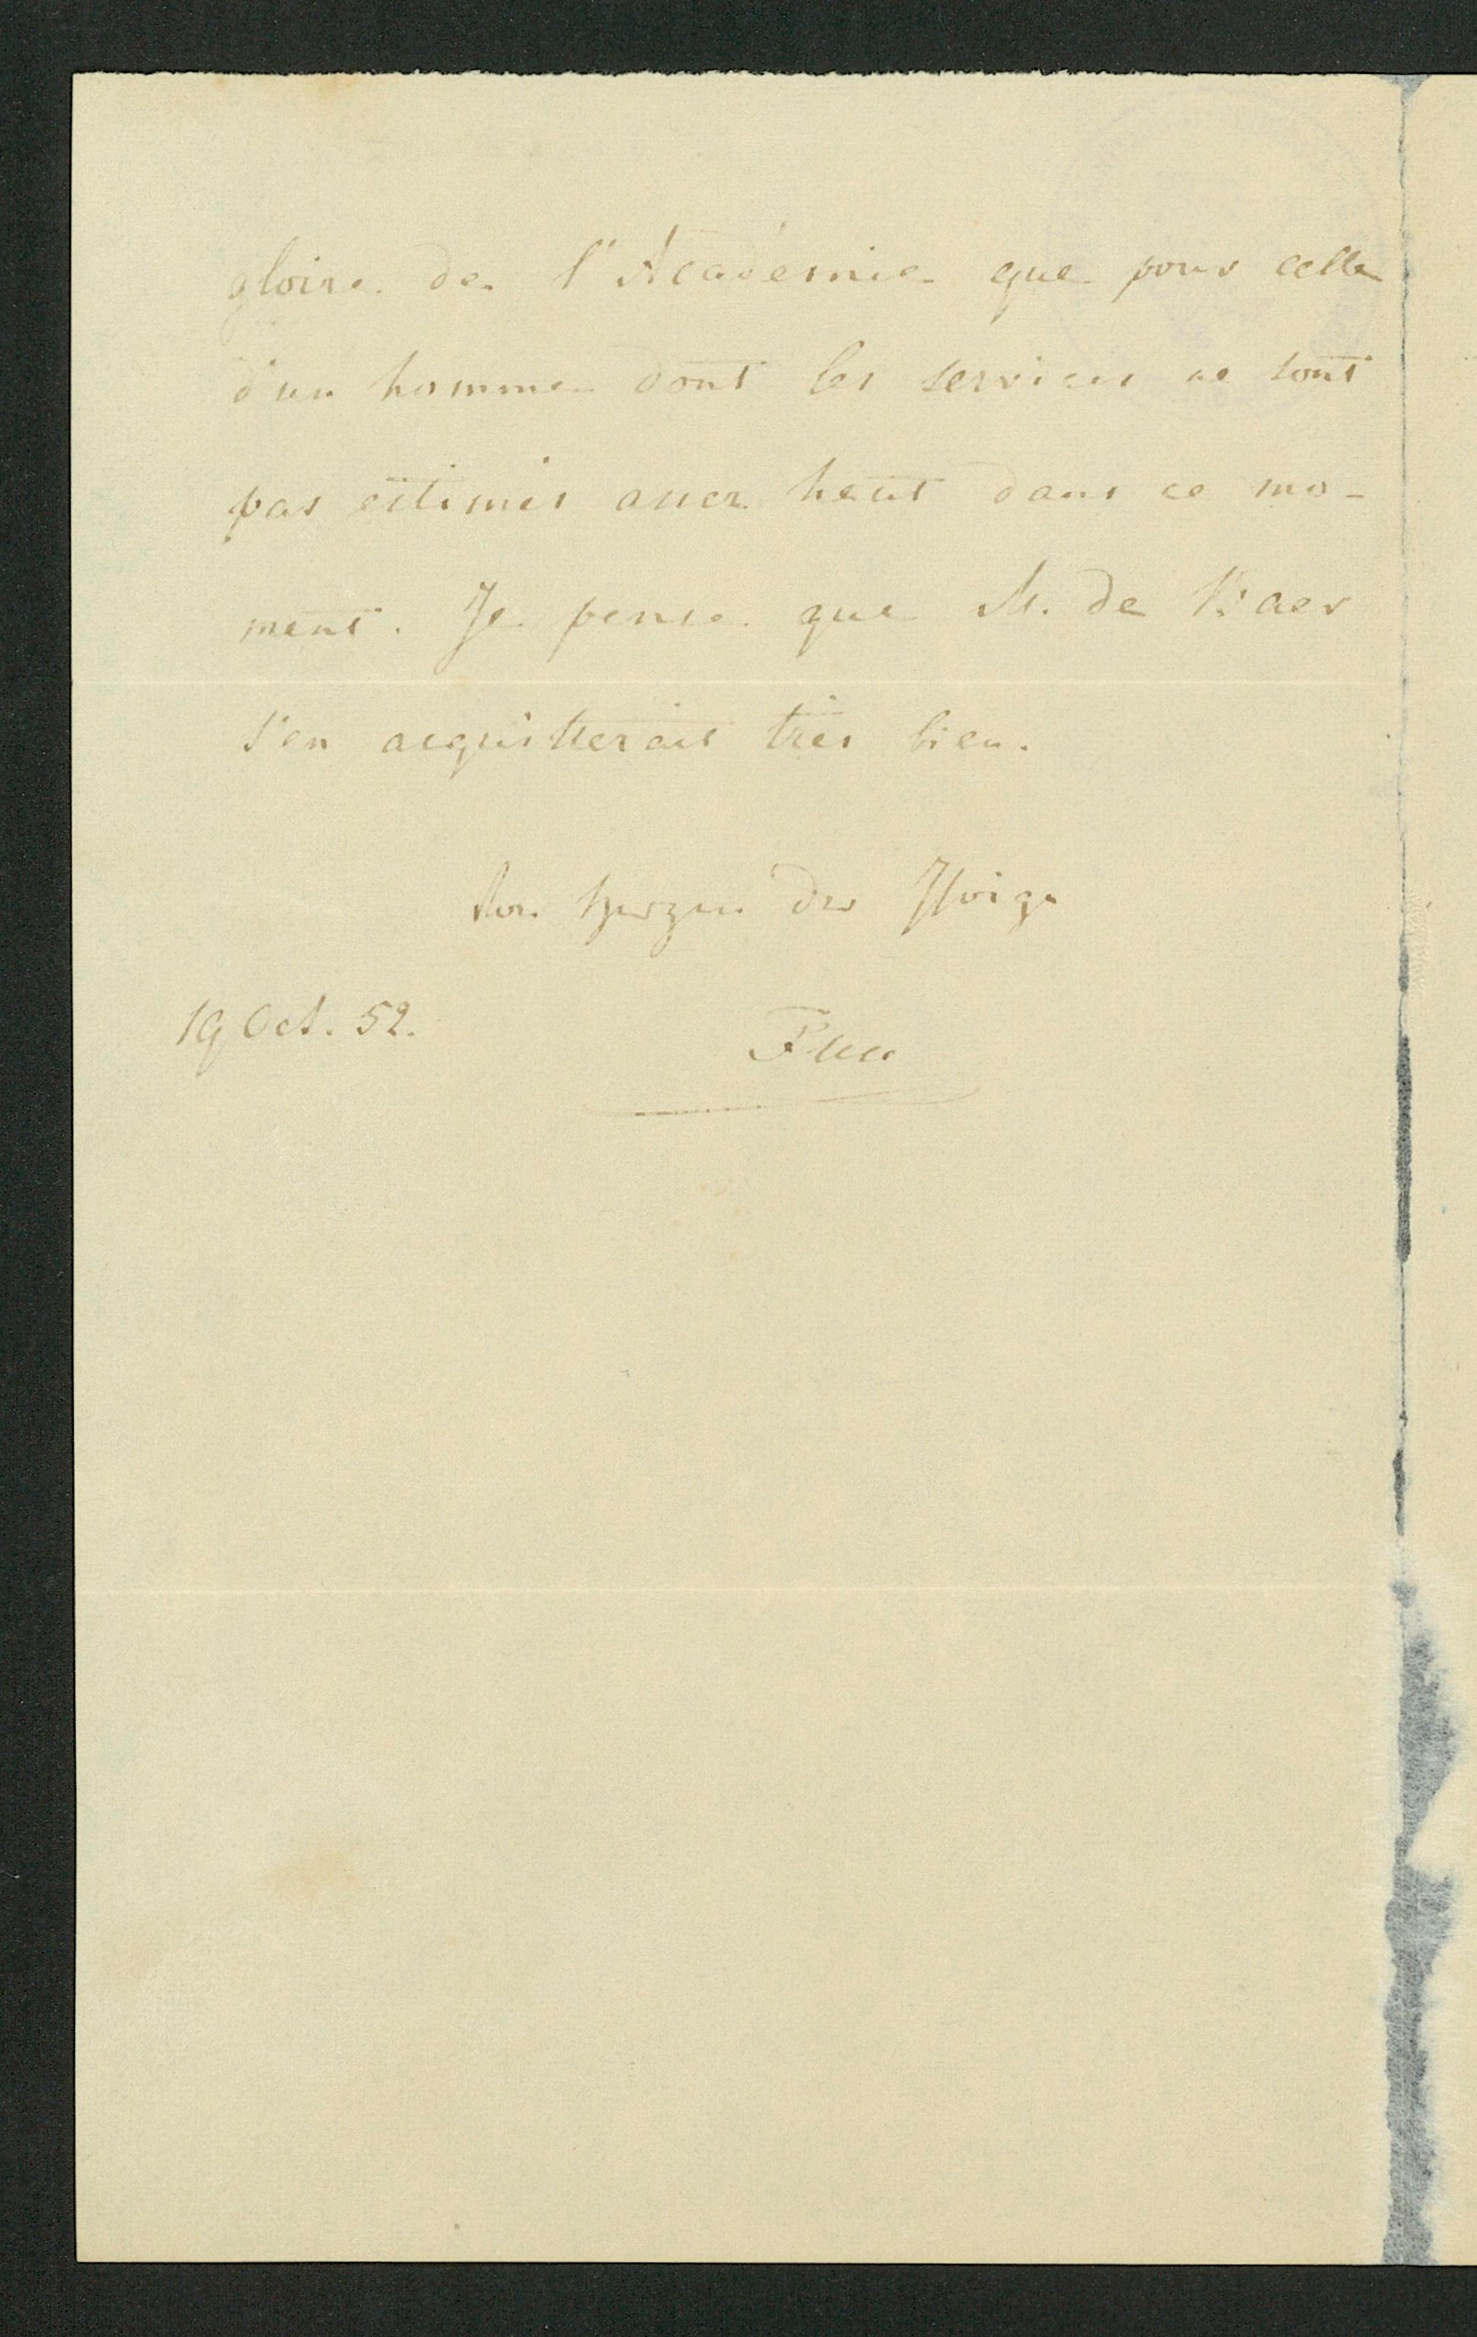 gloire de l'Académie que pour celle
d'un homme dont les services ne sont
pas estimés assez haut dans ce mo-
ment. Je pense que M. de Baer
s'en acquitterait très bien.
Von Herzen der Ihrige
19 Oct. 52.